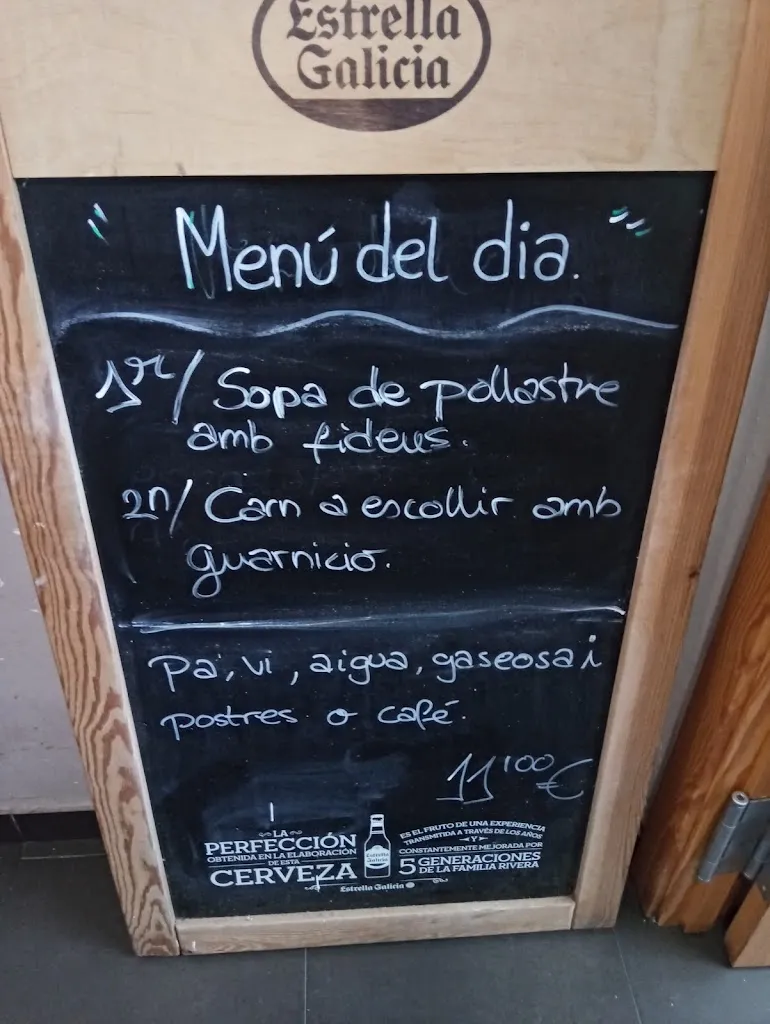 Estrella
Galicia
" Menú del dia. "
1er/ Sopa de pollastre
amb fideus.
2n/ Carn a escollir amb
guarnicio.
Pa, vi, aigua, gaseosa i
postres o café.
11'00€
LA
PERFECCIÓN
OBTENIDA EN LA ELABORACIÓN
DE ESTA
CERVEZA
Estrella Galicia
ES EL FRUTO DE UNA EXPERIENCIA
TRANSMITIDA A TRAVÉS DE LOS AÑOS
Y
CONSTANTEMENTE MEJORADA POR
5 GENERACIONES
DE LA FAMILIA RIVERA
Estrella Galicia